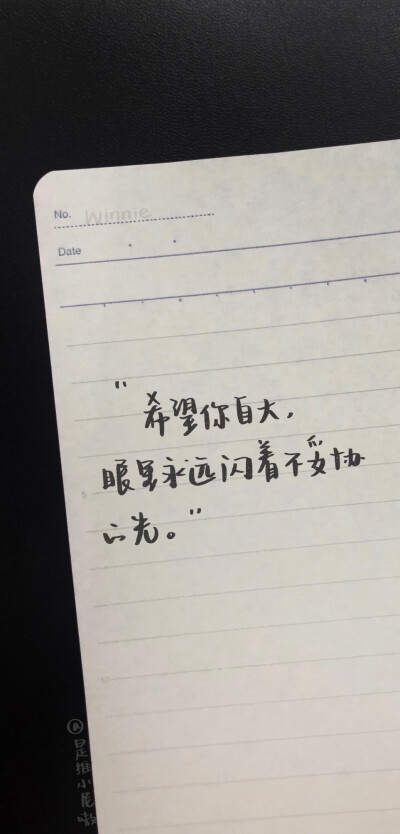 No. Winnie
Date
“希望你自大，
眼里永远闪着不妥协
的光。”